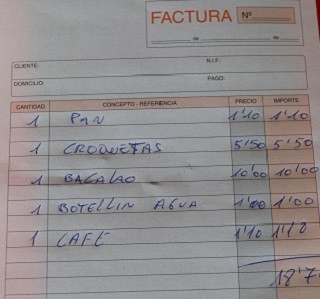 FACTURA Nº
de de
CLIENTE: N.I.F.:
DOMICILIO: PAGO:
CANTIDAD CONCEPTO - REFERENCIA PRECIO IMPORTE
1 PAN 1'10 1'10
1 CROQUETAS 5'50 5'50
1 BACALAO 10'00 10'00
1 BOTELLIN AGUA 1'00 1'00
1 CAFE 1'10 1'10
18'7